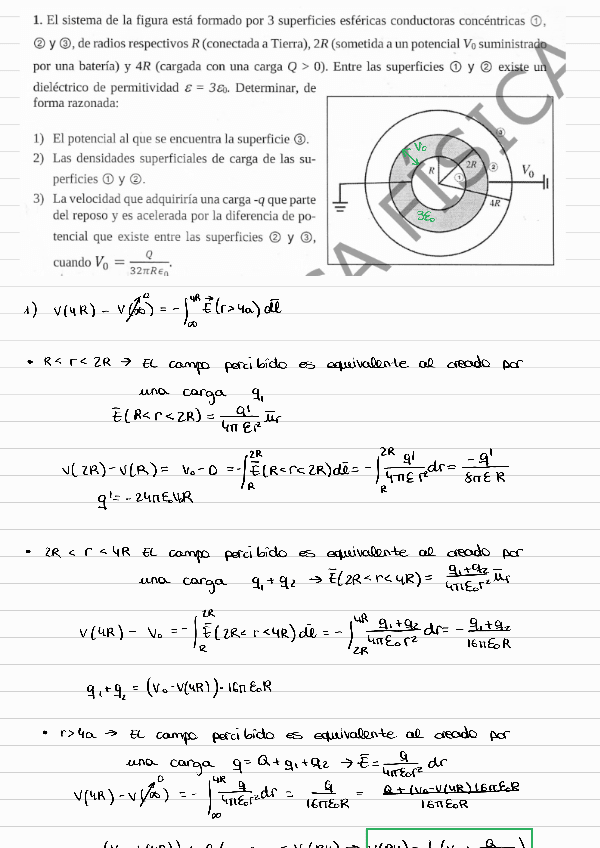 1. El sistema de la figura está formado por 3 superficies esféricas conductoras concéntricas ①,
② y ③, de radios respectivos R (conectada a Tierra), 2R (sometida a un potencial V₀ suministrado
por una batería) y 4R (cargada con una carga Q > 0). Entre las superficies ① y ② existe un
dieléctrico de permitividad ε = 3ε₀. Determinar, de
forma razonada:
1) El potencial al que se encuentra la superficie ③.
2) Las densidades superficiales de carga de las su-
perficies ① y ②.
3) La velocidad que adquiriría una carga -q que parte
del reposo y es acelerada por la diferencia de po-
tencial que existe entre las superficies ② y ③,
cuando V₀ = Q / 32πRϵ₀.
V₀
③
R
2R
②
①
V₀
4R
3ε₀
FISICA
1) V(4R) - V(∞)⁰ = - ∫_∞^4R E⃗(r>4a) dl̄
• R < r < 2R → El campo percibido es equivalente al creado por
una carga q₁
Ē(R<r<2R) = q'/4πεr² ūr
V(2R) - V(R) = V₀ - 0 = - ∫_R^2R Ē(R<r<2R) dl̄ = - ∫_R^2R q'/4πεr² dr = -q'/8πεR
q' = -24πε₀V₀R
• 2R < r < 4R El campo percibido es equivalente al creado por
una carga q₁+q₂ → Ē(2R<r<4R) = q₁+q₂/4πε₀r² ūr
V(4R) - V₀ = - ∫_R^2R Ē(2R<r<4R) dl̄ = - ∫_2R^4R q₁+q₂/4πε₀r² dr = - q₁+q₂/16πε₀R
q₁+q₂ = (V₀-V(4R))·16πε₀R
• r>4a → El campo percibido es equivalente al creado por
una carga q = Q+q₁+q₂ → Ē = q/4πε₀r² dr
V(4R) - V(∞)⁰ = - ∫_∞^4R q/4πε₀r² dr = q/16πε₀R = Q+(V₀-V(4R))16πε₀R/16πε₀R